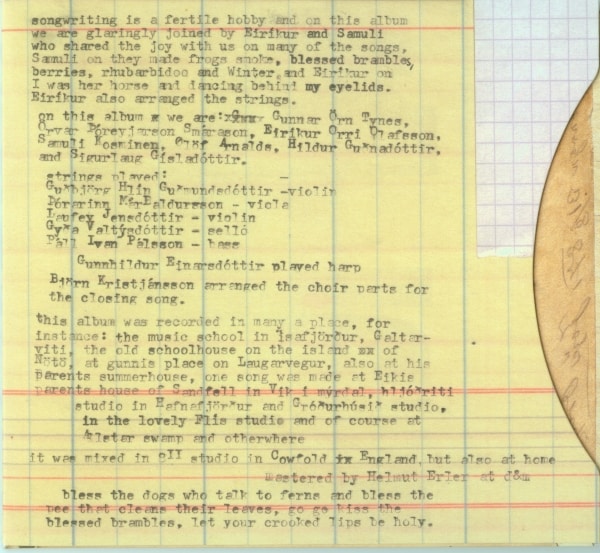 songwriting is a fertile hobby and on this album
we are glaringly joined by Eirikur and Samuli
who shared the joy with us on many of the songs,
Samuli on they made frogs smoke, blessed brambles,
berries, rhubarbidoo and Winter and Eirikur on
I was her horse and dancing behind my eyelids.
Eirikur also arranged the strings.
on this album x we are: Gunnar Örn Tynes,
Örvar Þóreyjarson Smárason, Eirikur Orri Ólafsson,
Samuli Kosminen, Ólöf Arnalds, Hildur Guðnadóttir,
and Sigurlaug Gísladóttir.
strings played: -
Guðbjörg Hlin Guðmundsdóttir -violin
Þórarinn Már Baldursson - viola
Laufey Jensdóttir - violin
Gyða Valtýsdóttir - selló
Páll Ivan Pálsson - bass
Gunnhildur Einarsdóttir played harp
Björn Kristjánsson arranged the choir parts for
the closing song.
this album was recorded in many a place, for
instance: the music school in ísafjörður, Galtar-
viti, the old schoolhouse on the island xx of
Nötö, at gunnis place on Laugarvegur, also at his
parents summerhouse, one song was made at Eikis
parents house of Sandfell in Vik i mýrdal, hljóðriti
studio in Hafnafjörður and Gróðurhúsið studio,
in the lovely Flís studio and of course at
Alstar swamp and otherwhere
it was mixed in studio in Cowfold xx England, but also at home
mastered by Helmut Erler at d&m
bless the dogs who talk to ferns and bless the
bee that cleans their leaves, go go kiss the
blessed brambles, let your crooked lips be holy.